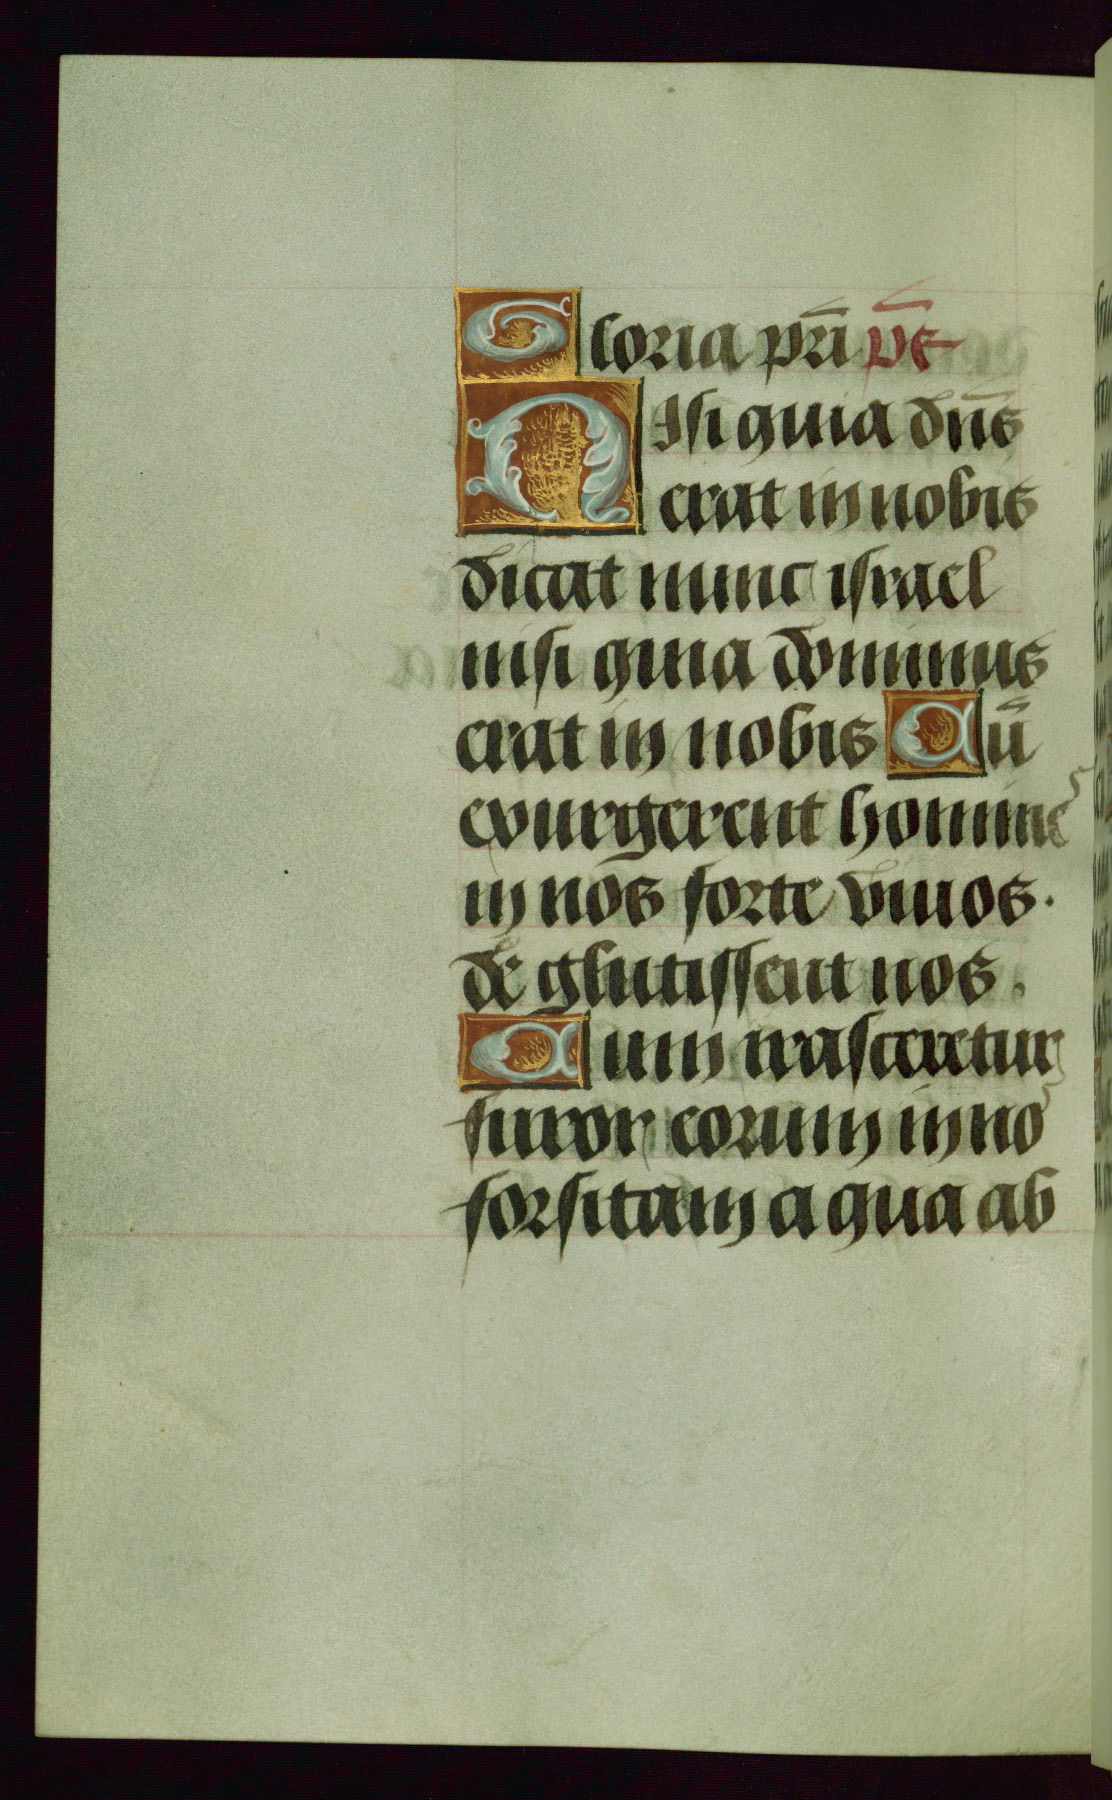 Gloria pr̄i p̄s
Nisi quia dn̄s
erat in nobis
dicat nunc israel
nisi quia dominus
erat in nobis Cū
exurgerent homines
in nos forte viuos.
de glutissent nos.
Cum irasceretur
furor eorum in nos
forsitam aqua ab